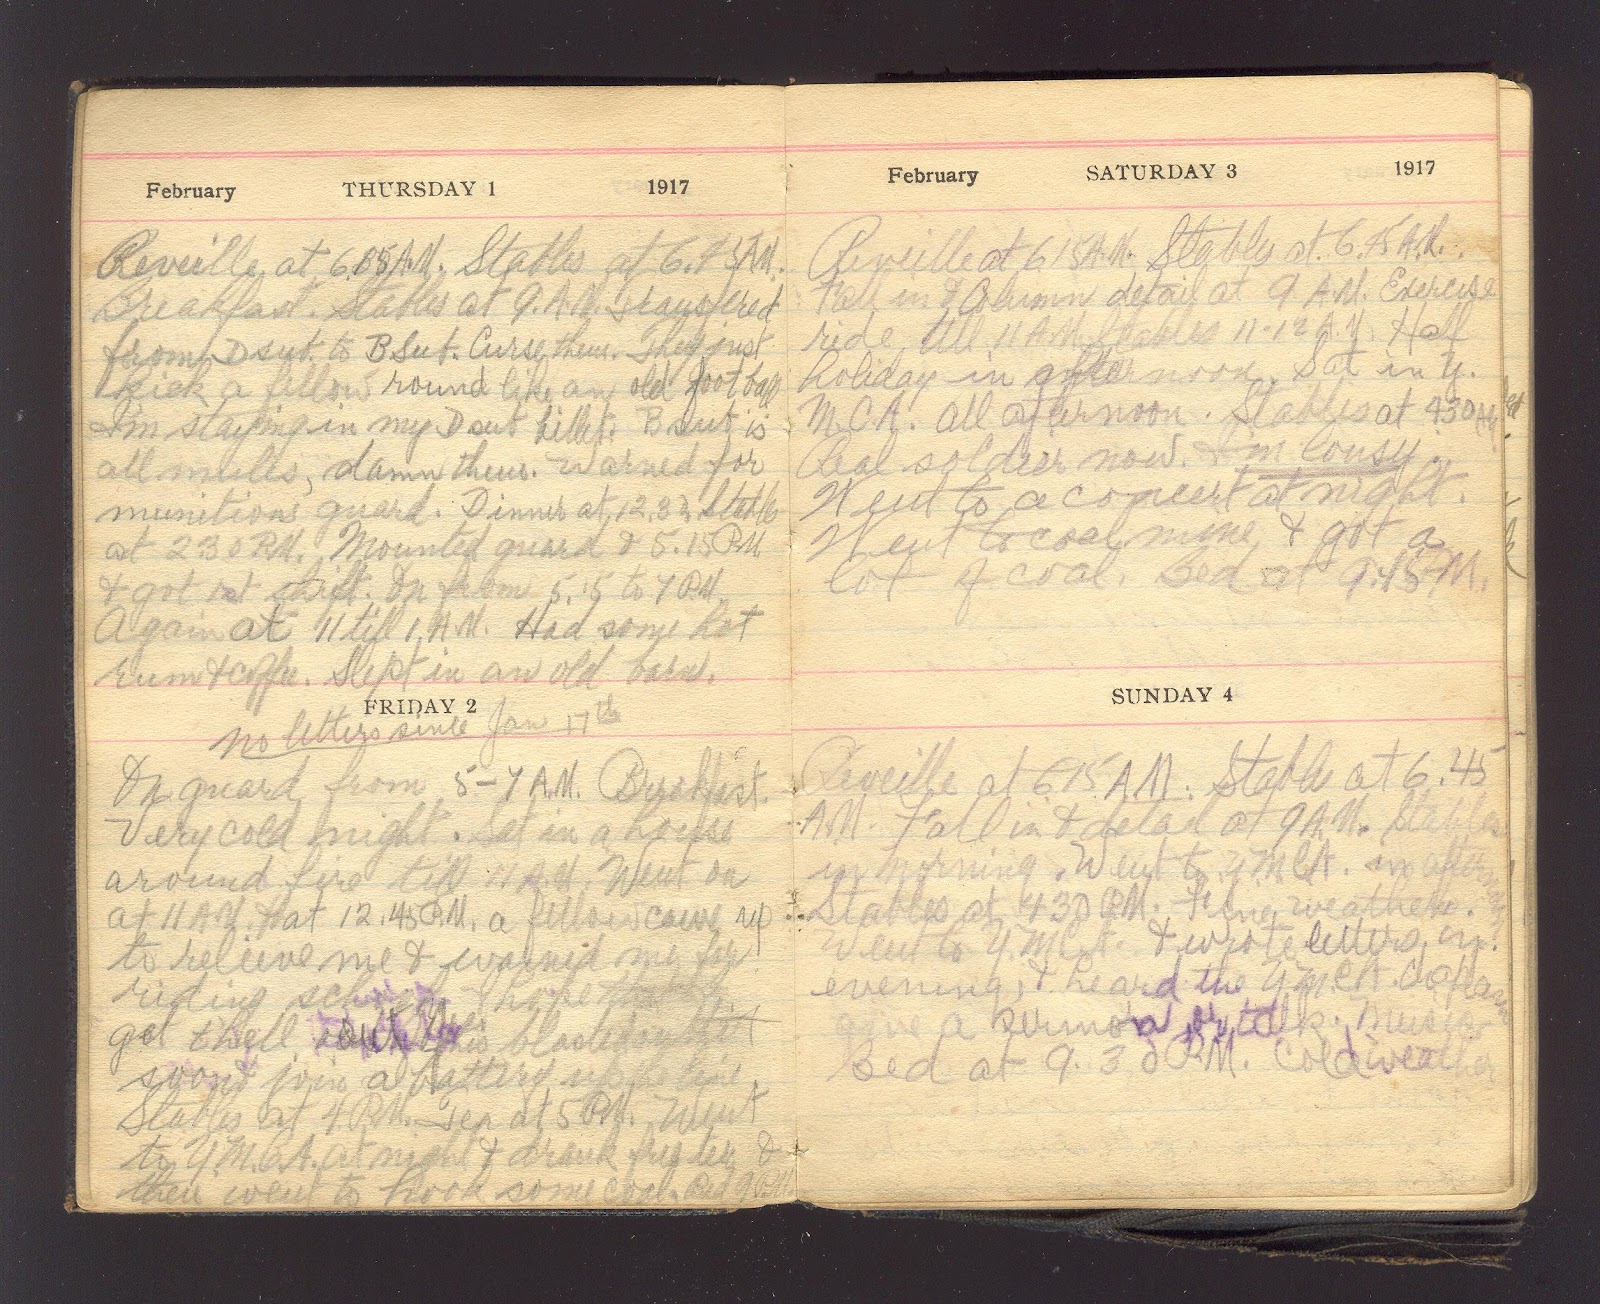 February THURSDAY 1 1917
Reveille at 6.05 A.M. Stables at 6.45 A.M.
Breakfast. Stables at 9. A.M. Transfered
from D sut. to B Sut. Curse them. They just
kick a fellow round like an old foot ball
I'm staying in my D sut billet. B sut is
all mules, damn them. Warned for
munitions guard. Dinner at 12.30 Stables
at 2 30 P.M. Mounted guard & 5.15 P.M.
& got 1st shift. On from 5.15 to 7 P.M.
Again at 11 till 1 A.M. Had some hot
rum & coffee. Slept in an old barn.
FRIDAY 2
no letters since Jan 17th
On guard from 5-7 A.M. Breakfast.
Very cold night. Set in a house
around fire till 11 A.M. Went on
at 11 A.M. & at 12.45 P.M. a fellow came up
to relieve me & warned me for
riding school. I hope
get t'hell out this
soon & join a battery up the line.
Stables at 4 P.M. Tea at 5 P.M. Went
to Y.M.C.A. at night & drank free tea &
then went to hook some coal. Bed 9 P.M.
February SATURDAY 3 1917
Reveille at 6 15 A.M. Stables at 6.45 A.M.
Fall in & Column detail at 9 A.M. Exercise
ride till 11 A.M. Stables 11-12 A.M. Half
holiday in afternoon. Sat in Y.
M.C.A. all afternoon. Stables at 430 P.M.
Real soldier now. I'm lousy.
Went to a concert at night.
Went to coal mine & got a
lot of coal. Bed at 9.45 P.M.
SUNDAY 4
Reveille at 6 15 A.M. Stables at 6.45
A.M. Fall in & detail at 9 A.M. Stables
in morning. Went to Y.M.C.A. in afternoon
Stables at 430 P.M. Fine weather.
Went to Y.M.C.A. & wrote letters in
evening, & heard the Y.M.C.A. Captain
give a sermon or talk. Music
Bed at 9.30 P.M. Cold weather